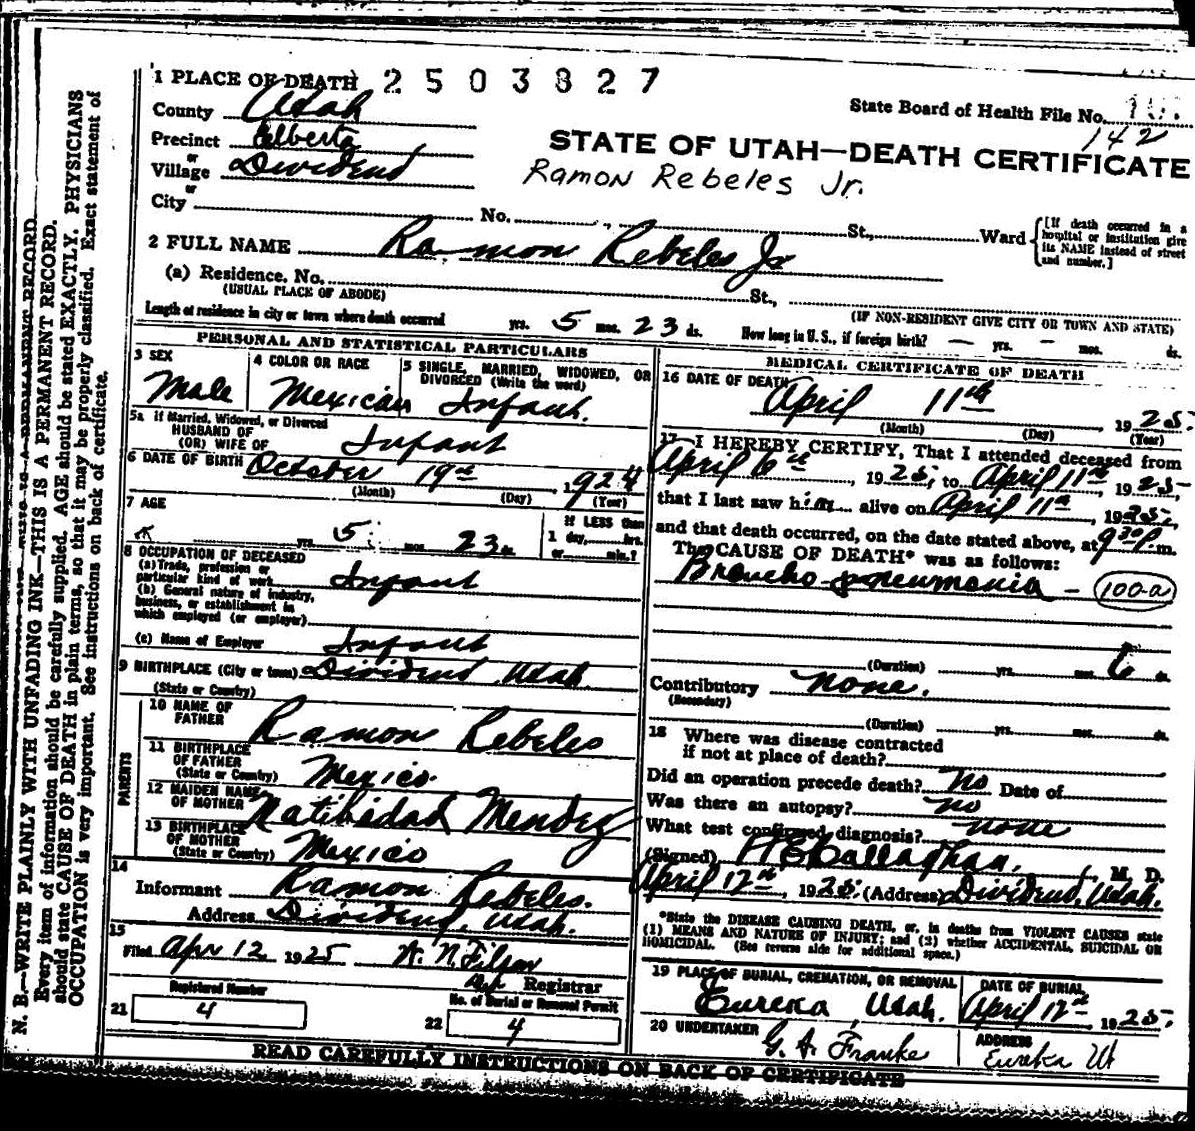 N. B.—WRITE PLAINLY WITH UNFADING INK—THIS IS A PERMANENT RECORD.
Every item of information should be carefully supplied. AGE should be stated EXACTLY. PHYSICIANS
should state CAUSE OF DEATH in plain terms, so that it may be properly classified. Exact statement of
OCCUPATION is very important. See instructions on back of certificate.
1 PLACE OF DEATH 2503827
State Board of Health File No.
142
County Utah
Precinct Elberta
or
Village Dividend
or
City No. St., Ward
[If death occurred in a hospital or institution give its NAME instead of street and number.]
STATE OF UTAH—DEATH CERTIFICATE
Ramon Rebeles Jr.
2 FULL NAME Ramon Rebeles Jr
(a) Residence. No. St.,
(USUAL PLACE OF ABODE) (IF NON-RESIDENT GIVE CITY OR TOWN AND STATE)
Length of residence in city or town where death occurred yrs. 5 mos. 23 ds. How long in U. S., if foreign birth? — yrs. — mos. ds.
PERSONAL AND STATISTICAL PARTICULARS
3 SEX Male
4 COLOR OR RACE Mexican
5 SINGLE, MARRIED, WIDOWED, OR DIVORCED (Write the word) Infant.
5a If Married, Widowed, or Divorced
HUSBAND OF
(OR) WIFE OF Infant
6 DATE OF BIRTH October 19th 1924
(Month) (Day) (Year)
7 AGE
yrs. 5 mos. 23 ds
If LESS than
1 day, hrs.
or min.?
8 OCCUPATION OF DECEASED
(a) Trade, profession or
particular kind of work Infant
(b) General nature of industry,
business, or establishment in
which employed (or employer)
(c) Name of Employer Infant
9 BIRTHPLACE (City or town) Dividend Utah
(State or Country)
PARENTS
10 NAME OF FATHER Ramon Rebeles
11 BIRTHPLACE OF FATHER (State or Country) Mexico
12 MAIDEN NAME OF MOTHER Natibidad Mendez
13 BIRTHPLACE OF MOTHER (State or Country) Mexico
14
Informant Ramon Rebeles.
Address Dividend, Utah.
15
Filed Apr 12 1925
Registrar
Registered Number
21 4
No. of Burial or Removal Permit
22 4
MEDICAL CERTIFICATE OF DEATH
16 DATE OF DEATH April 11th 1925.
(Month) (Day) (Year)
17 I HEREBY CERTIFY, That I attended deceased from
April 6th, 1925, to April 11th, 1925
that I last saw him alive on April 11th, 1925,
and that death occurred, on the date stated above, at 930P.m.
The CAUSE OF DEATH* was as follows:
Broncho pneumonia — 100-a
(Duration) yrs. mos. 6 ds.
Contributory none.
(Secondary)
(Duration) yrs. mos. ds.
18 Where was disease contracted
if not at place of death?
Did an operation precede death? No Date of
Was there an autopsy? no
What test confirmed diagnosis? none
(Signed) H E Callaghan, M. D.
April 12th, 1925. (Address) Dividend, Utah.
*State the DISEASE CAUSING DEATH, or, in deaths from VIOLENT CAUSES state
(1) MEANS AND NATURE OF INJURY; and (2) whether ACCIDENTAL, SUICIDAL OR
HOMICIDAL. (See reverse side for additional space.)
19 PLACE OF BURIAL, CREMATION, OR REMOVAL
Eureka, Utah.
DATE OF BURIAL
April 12th, 1925.
20 UNDERTAKER G. A. Franke
ADDRESS
Eureka Ut
READ CAREFULLY INSTRUCTIONS ON BACK OF CERTIFICATE